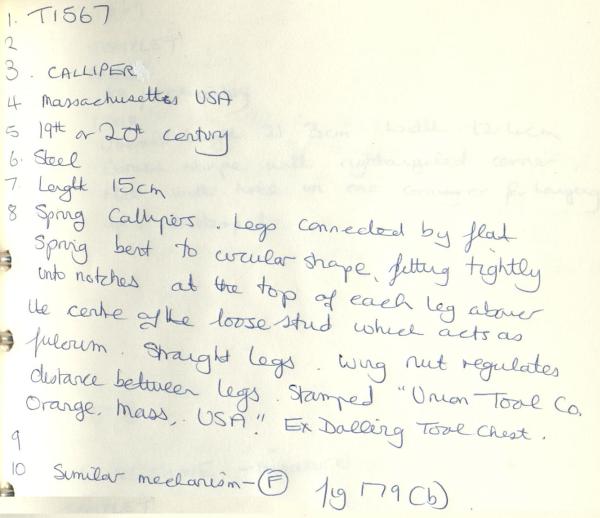 1. T1567
2
3. CALLIPER
4 Massachusetts USA
5 19th or 20th century
6. Steel
7. Length 15cm
8 Spring Callipers. Legs connected by flat
spring bent to circular shape, fitting tightly
into notches at the top of each leg above
the centre of the loose stud which acts as
fulcrum. Straight legs. Wing nut regulates
distance between legs. Stamped "Union Tool Co.
Orange, Mass,. USA." Ex Dalling Tool Chest.
9
10 Similar mechanism - (F) fig 179 (b)